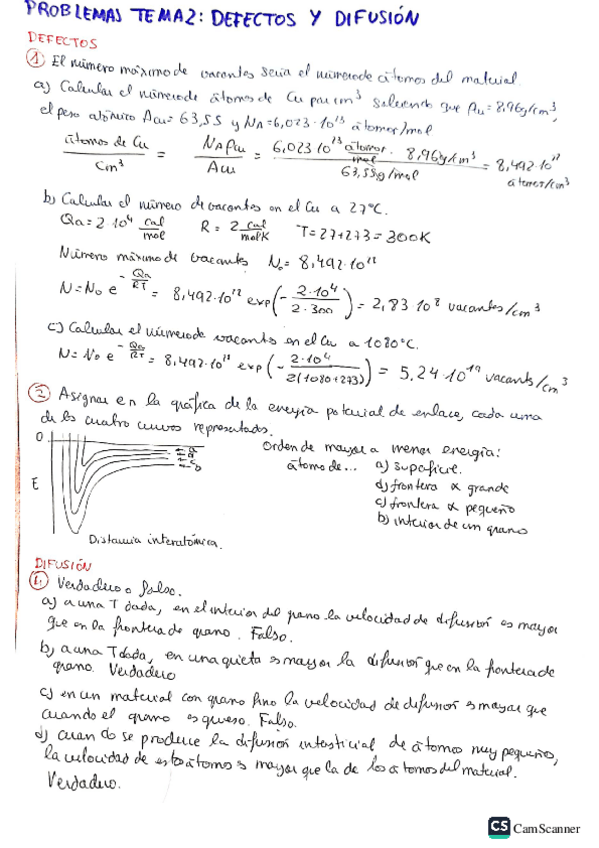 PROBLEMAS TEMA2: DEFECTOS Y DIFUSIÓN
DEFECTOS
① El número máximo de vacantes seria el número de átomos del material.
a) Calcular el número de átomos de Cu por cm³ sabiendo que ρcu = 8,96g/cm³,
el peso atómico Acu = 63,55 y NA = 6,023·10²³ átomos/mol
átomos de Cu / cm³ = NA ρcu / Acu = 6,023 10²³ átomos/mol · 8,96g/cm³ / 63,55g/mol = 8,492·10²² átomos/cm³
b) Calcular el número de vacantes en el Cu a 27°C.
Qa = 2·10⁴ cal/mol R = 2 cal/molK T = 27+273 = 300K
Número máximo de vacantes N₀ = 8,492·10²²
N = N₀ e^(-Qa/RT) = 8,492·10²² exp(-2·10⁴/2·300) = 2,83 10⁸ vacantes/cm³
c) Calcular el número de vacantes en el Cu a 1080°C.
N = N₀ e^(-Qa/RT) = 8,492·10²² exp(-2·10⁴/2(1080+273)) = 5,24·10¹⁹ vacants/cm³
② Asignar en la gráfica de la energía potencial de enlace, cada una
de las cuatro curvas representadas.
0
E
Distancia interatómica.
Orden de mayor a menor energía:
átomo de... a) supeficie.
d) frontera α grande
c) frontera α pequeño
b) interior de un grano
DIFUSIÓN
① Verdadero o falso.
a) a una T dada, en el interior del grano la velocidad de difusión es mayor
que en la frontera de grano. Falso.
b) a una T dada, en una grieta es mayor la difusión que en la frontera de
grano. Verdadero
c) en un material con grano fino la velocidad de difusión es mayor que
cuando el grano es grueso. Falso.
d) cuando se produce la difusión intersticial de átomos muy pequeños,
la velocidad de estos átomos es mayor que la de los átomos del material.
Verdadero.
CS CamScanner